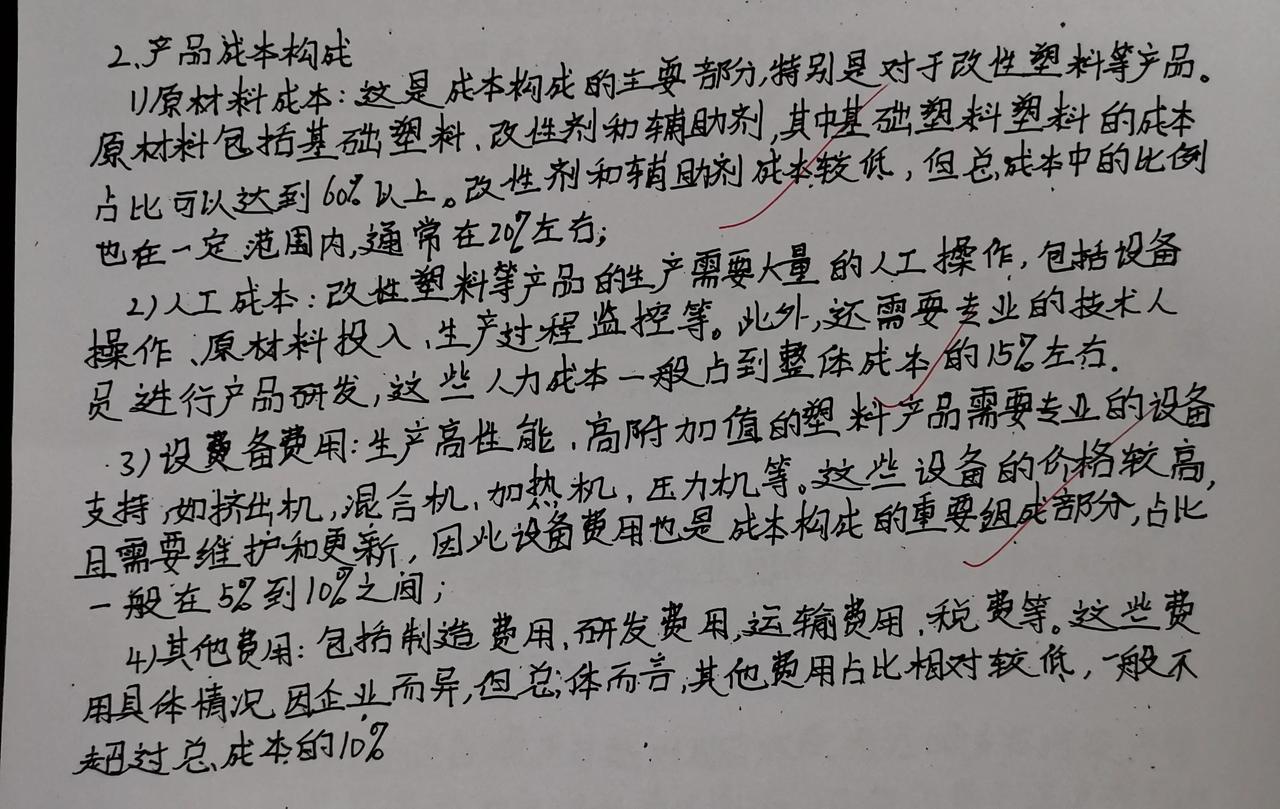 2、产品成本构成
1)原材料成本:这是成本构成的主要部分,特别是对于改性塑料等产品。
原材料包括基础塑料、改性剂和辅助剂,其中基础塑料塑料的成本
占比可以达到60%以上。改性剂和辅助剂成本较低,但总成本中的比例
也在一定范围内,通常在20%左右;
2)人工成本:改性塑料等产品的生产需要大量的人工操作,包括设备
操作、原材料投入、生产过程监控等。此外,还需要专业的技术人
员进行产品研发,这些人力成本一般占到整体成本的15%左右.
3)设费备费用:生产高性能、高附加值的塑料产品需要专业的设备
支持,如挤出机,混合机、加热机、压力机等。这些设备的价格较高,
且需要维护和更新,因此设备费用也是成本构成的重要组成部分,占比
一般在5%到10%之间;
4)其他费用:包括制造费用、研发费用、运输费用、税费等。这些费
用具体情况因企业而异,但总体而言,其他费用占比相对较低,一般不
超过总成本的10%